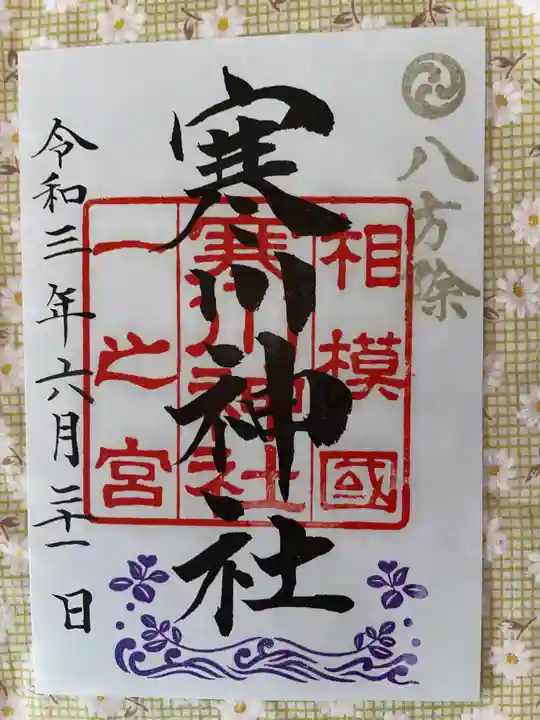 八方除
相模國
寒川神社
一之宮
寒川神社
令和三年六月二十一日